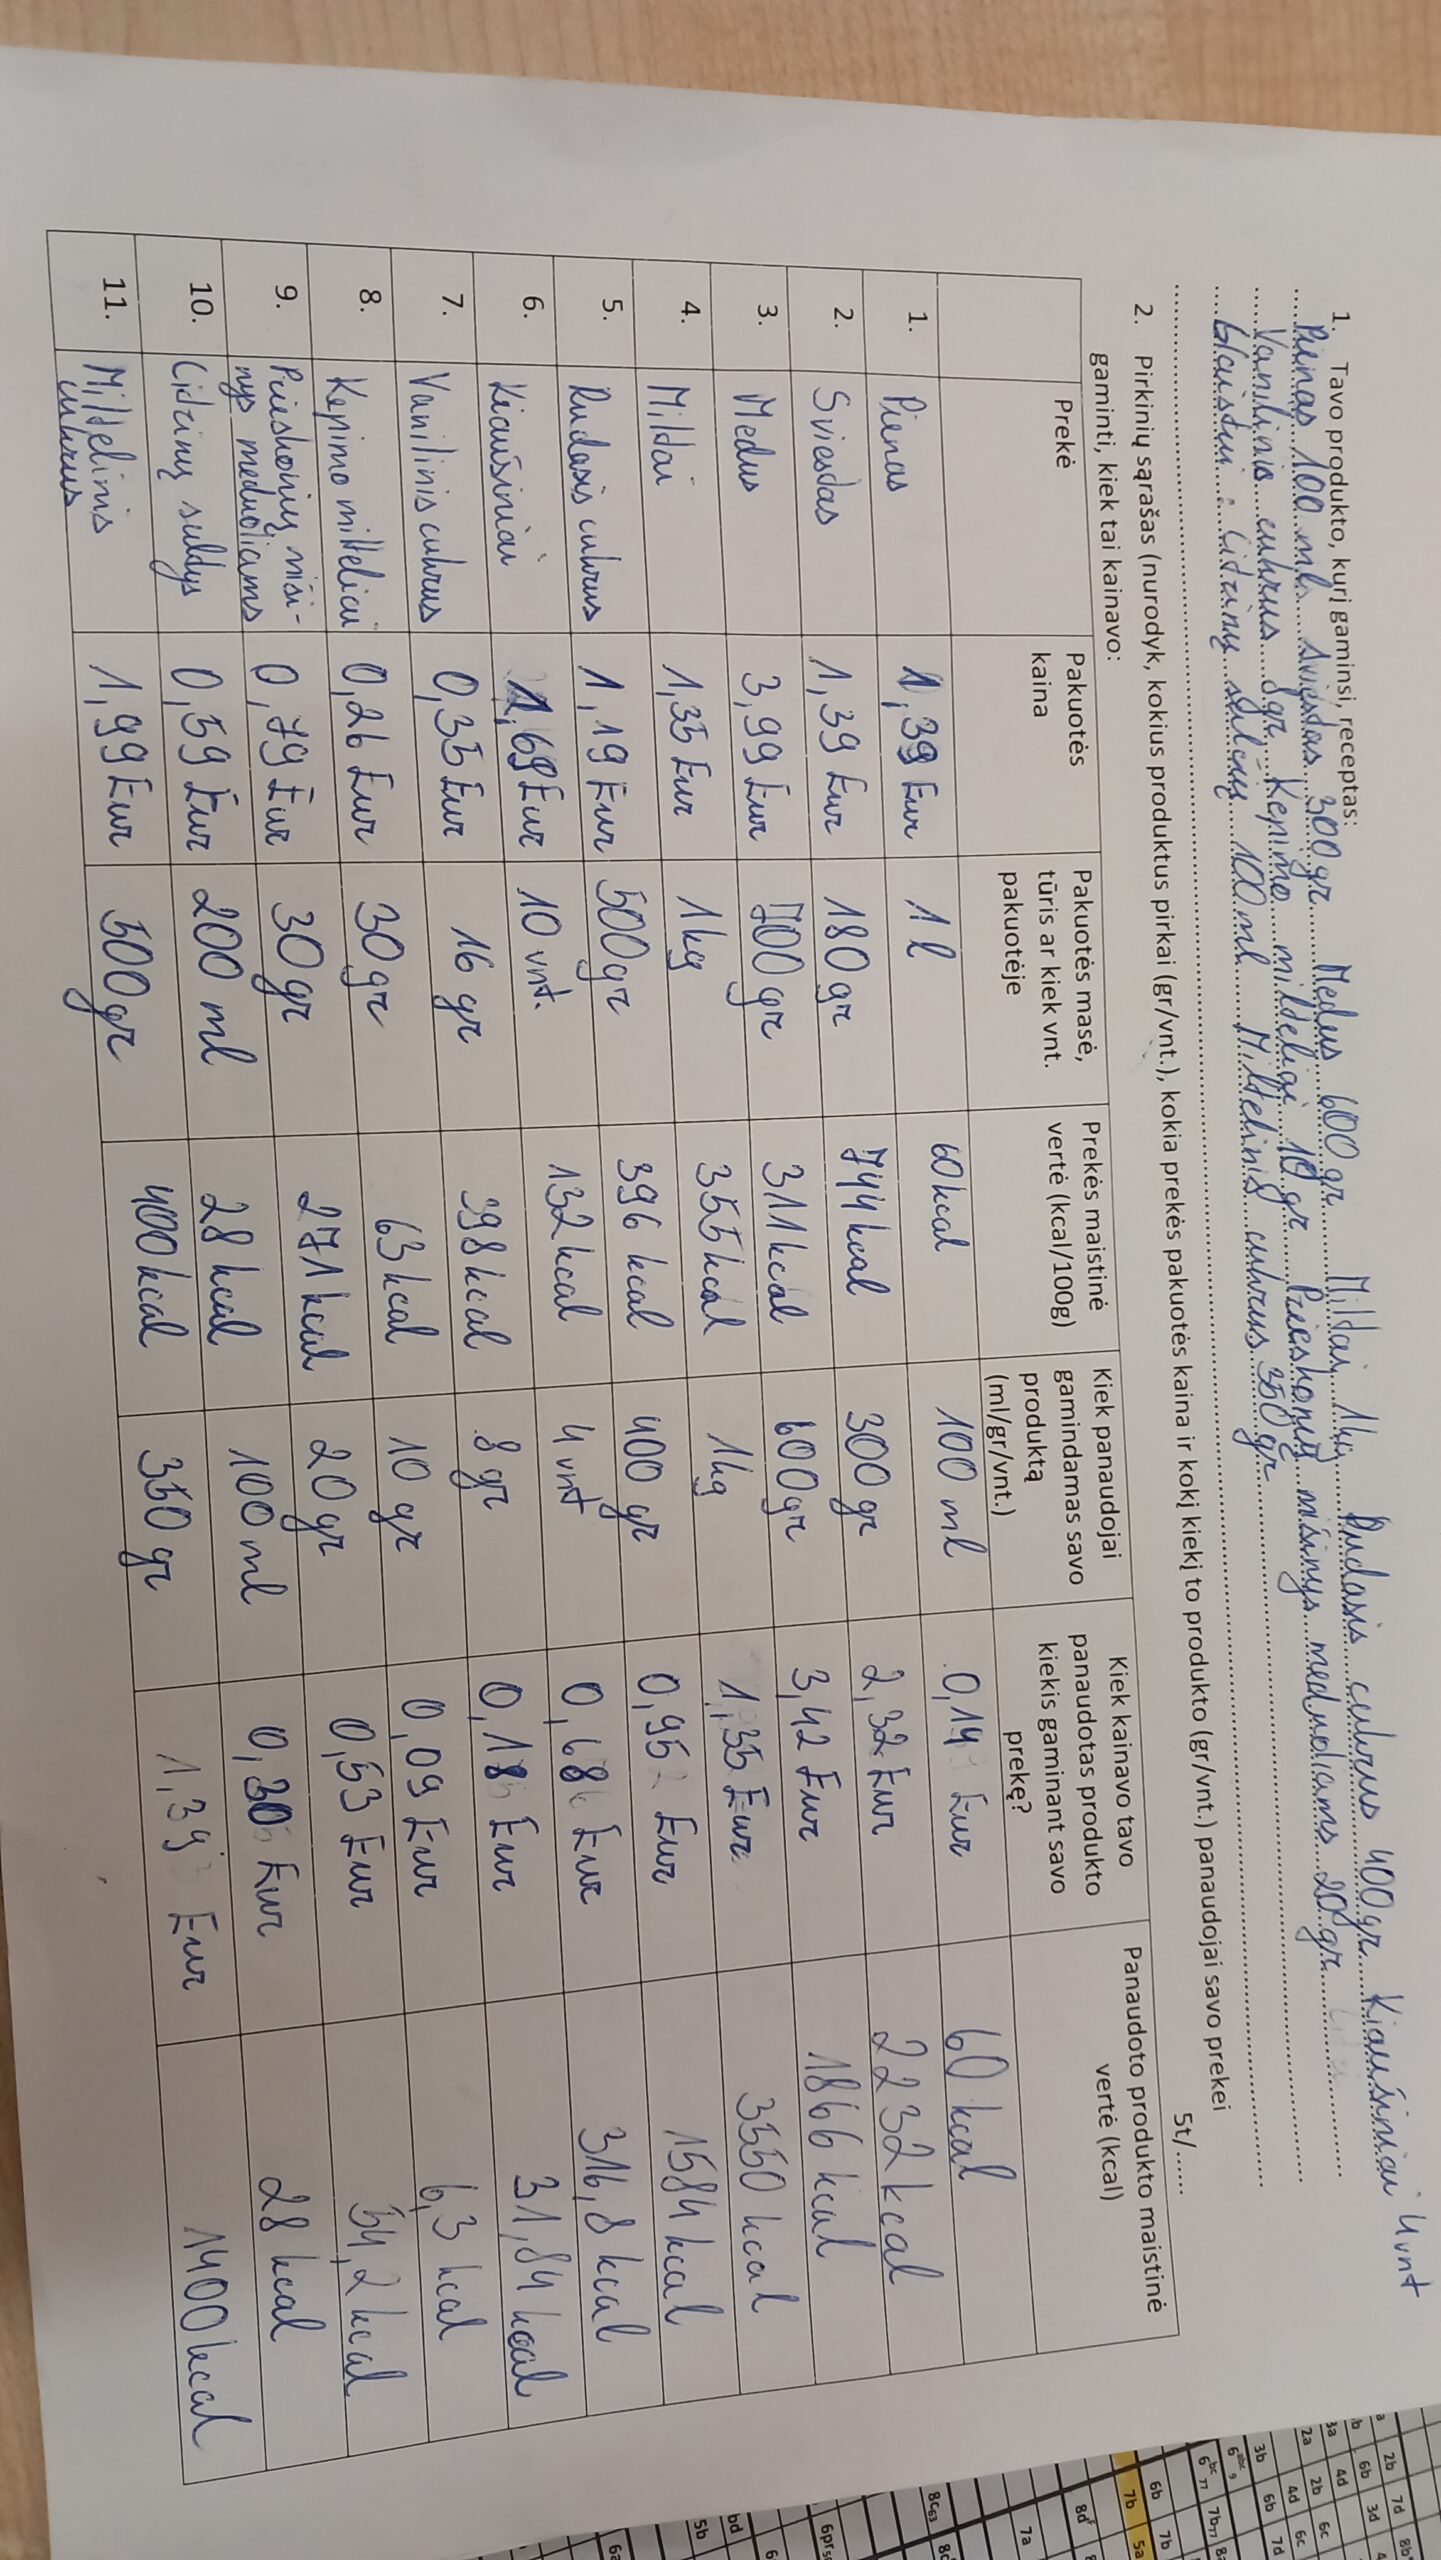 1. Tavo produkto, kurį gaminsi, receptas:
Pienas 100 ml Sviestas 300gr Medus 600gr Miltai 1kg Rudasis cukrus 400gr Kiaušiniai 4vnt
Vanilinis cukrus 8gr Kepimo milteliai 10gr Prieskonių mišinys meduoliams 20gr
Glaistui: Citrinų sulčių 100ml Miltelinis cukrus 350gr
5t/......
2. Pirkinių sąrašas (nurodyk, kokius produktus pirkai (gr/vnt.), kokia prekės pakuotės kaina ir kokį kiekį to produkto (gr/vnt.) panaudojai savo prekei
gaminti, kiek tai kainavo:
Prekė Pakuotės kaina Pakuotės masė, tūris ar kiek vnt. pakuotėje Prekės maistinė vertė (kcal/100g) Kiek panaudojai gamindamas savo produktą (ml/gr/vnt.) Kiek kainavo tavo panaudotas produkto kiekis gaminant savo prekę? Panaudoto produkto maistinė vertė (kcal)
1. Pienas 1,39 Eur 1l 60kcal 100 ml 0,14 Eur 60 kcal
2. Sviestas 1,39 Eur 180gr 744kcal 300 gr 2,32 Eur 2232kcal
3. Medus 3,99 Eur 700gr 311kcal 600gr 3,42 Eur 1866 kcal
4. Miltai 1,35 Eur 1kg 355kcal 1kg 1,35 Eur 3550 kcal
5. Rudasis cukrus 1,19 Eur 500gr 396 kcal 400 gr 0,95 Eur 1584kcal
6. Kiaušiniai 1,69 Eur 10 vnt. 132kcal 4 vnt 0,68 Eur 316,8 kcal
7. Vanilinis cukrus 0,35 Eur 16 gr 398kcal 8 gr 0,18 Eur 31,84 kcal
8. Kepimo milteliai 0,26 Eur 30gr 63kcal 10 gr 0,09 Eur 6,3 kcal
9. Prieskonių miši-
nys meduoliams 0,79 Eur 30gr 271kcal 20gr 0,53 Eur 54,2 kcal
10. Citrinų sultys 0,59 Eur 200 ml 28 kcal 100ml 0,30 Eur 28 kcal
11. Miltelinis
cukrus 1,99 Eur 500gr 400kcal 350 gr 1,39 Eur 1400kcal